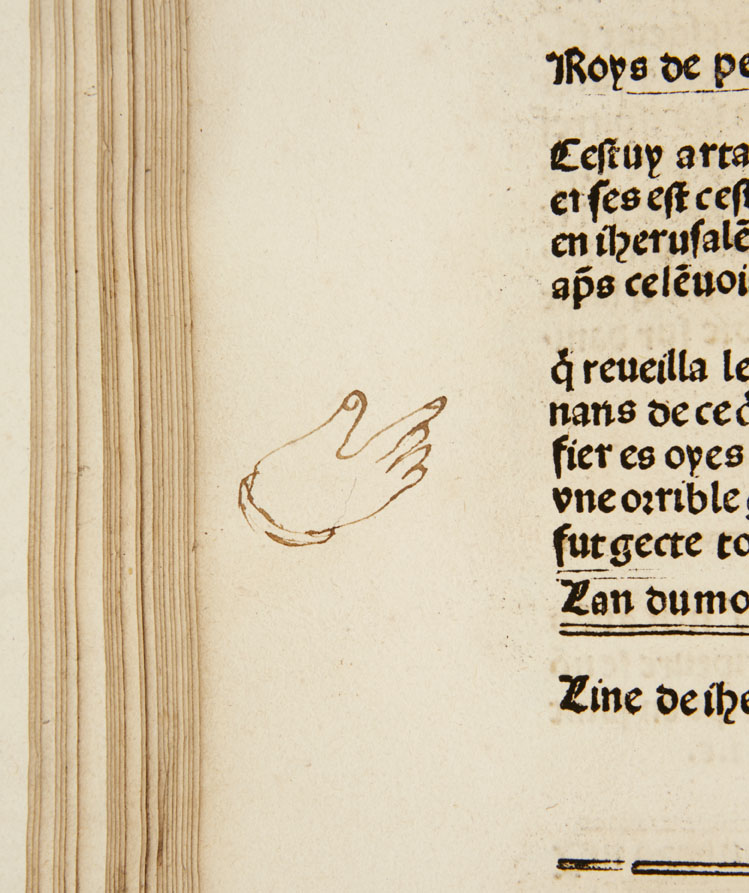 Roys de pe
Cestuy arta
et ses est cest
en iherusalē
ap̄s celēuoi
q̇ reueilla le
nans de ce
fier es oyes
vne orrible
fut gecte to
Lan du mo
Line de ihe